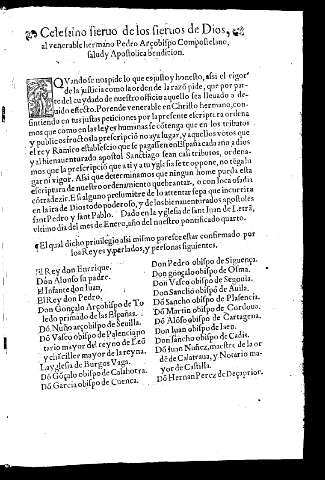 Celestino siervo de los siervos de Dios,
al venerable hermano Pedro Arçobispo Compostelano,
salud y Apostolica bendicion.
QVando se nos pide lo que es justo y honesto, assi el rigor
de la justicia como la orden de la razõ pide, que por par-
te del cuydado de nuestro officio aquello sea lleuado a de-
uido effecto. Porende venerable en Christo hermano, con-
sintiendo en tus justas peticiones por la presente escriptura ordena
mos que como en las leyes humanas se cõtenga que en los tributos
y publicas functiões la prescripciõ no aya lugar, y aquellos votos que
el rey Ramiro establescio que se pagassen en España cada año a dios
y al bienauenturado apostol Sanctiago sean casi tributos, ordena-
mos que la prescripciõ que a ti y a tu yglesia se te oppone, no tẽga lu
gar ni vigor. Assi que determinamos que ningun home pueda esta
escriptura de nuestro ordenamiento quebrantar, o con loca osadia
cõtradezir. E si alguno presumiere de lo attentar sepa que incurrira
en la ira de Dios todo poderoso, y de los bienauenturados apostoles
sant Pedro y sant Pablo. Dado en la yglesia de sant Iuan de Letrã,
vltimo dia del mes de Enero, año del nuestro pontificado quarto.
¶ El qual dicho priuilegio assi mismo paresce estar confirmado por
los Reyes y perlados, y personas siguientes.
El Rey don Enrrique.
Dõn Alonso su padre.
El Infante don Iuan,
El Rey don Pedro,
Don Gonçalo Arçobispo de To
ledo primado de las Españas.
Dõ Nuño arçobispo de Seuilla.
Dõ Vasco obispo de Palencia no
tario mayor del reyno de Leõ
y chãciller mayor de la reyna.
La yglesia de Burgos Vaga.
Dõ Gõçalo obispo de Calahorra.
Dõ Garcia obispo de Cuenca.
Don Pedro obispo de Siguença.
Don gonçalo obispo de Osma.
Don Vasco obispo de Segouia.
Don Sancho obispo de Auila.
Dõ Sancho obispo de Plasencia.
Dõ Martin obispo de Cordoua.
Dõ Alõso obispo de Cartagena.
Don Iuan obispo de Iaen.
Don sancho obispo de Cadis.
Dõ Iuan Nuñez, maestre de la or
dẽ de Calatraua, y Notario ma-
yor de Castilla.
Dõ Hernan Perez de